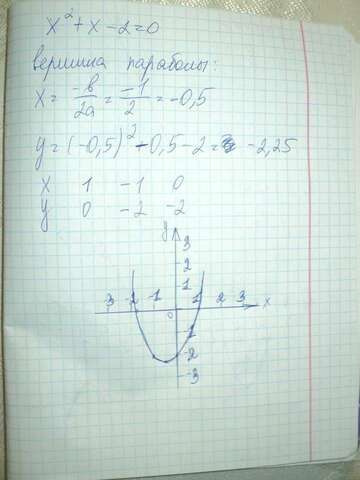 x² + x - 2 = 0
вершина параболы:
x = -b/2a = -1/2 = -0,5
y = (-0,5)² - 0,5 - 2 = -2,25
x 1 -1 0
y 0 -2 -2
y
3
2
1
3 -2 -1 0 1 2 3 x
-1
-2
-3